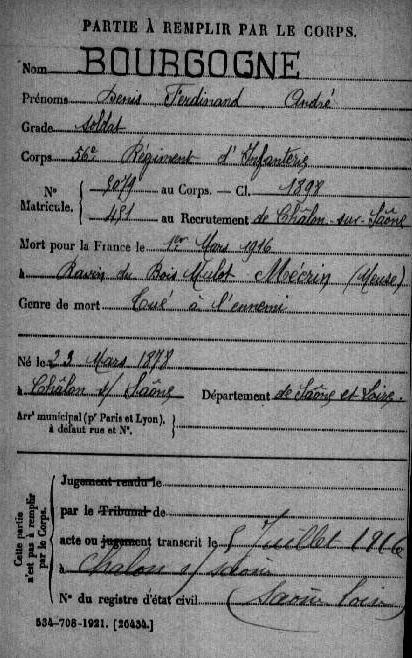 PARTIE À REMPLIR PAR LE CORPS.
Nom BOURGOGNE
Prénoms Denis Ferdinand André
Grade Soldat
Corps 56e Régiment d'Infanterie
N° Matricule. 5079 au Corps. — Cl. 1898
481 au Recrutement de Châlon-sur-Saône
Mort pour la France le 1er Mars 1916
à Ravin du Bois Mulot Mécrin (Meuse)
Genre de mort Tué à l'ennemi
Né le 23 Mars 1878
à Châlon s/ Saône Département de Saône et Loire.
Arrt municipal (pr Paris et Lyon), à défaut rue et N°.
Cette partie n'est pas à remplir par le Corps.
Jugement rendu le
par le Tribunal de
acte ou jugement transcrit le 5 Juillet 1916
à Chalon s/ Saône
(Saône Loire)
N° du registre d'état civil
534-708-1921. [26434.]